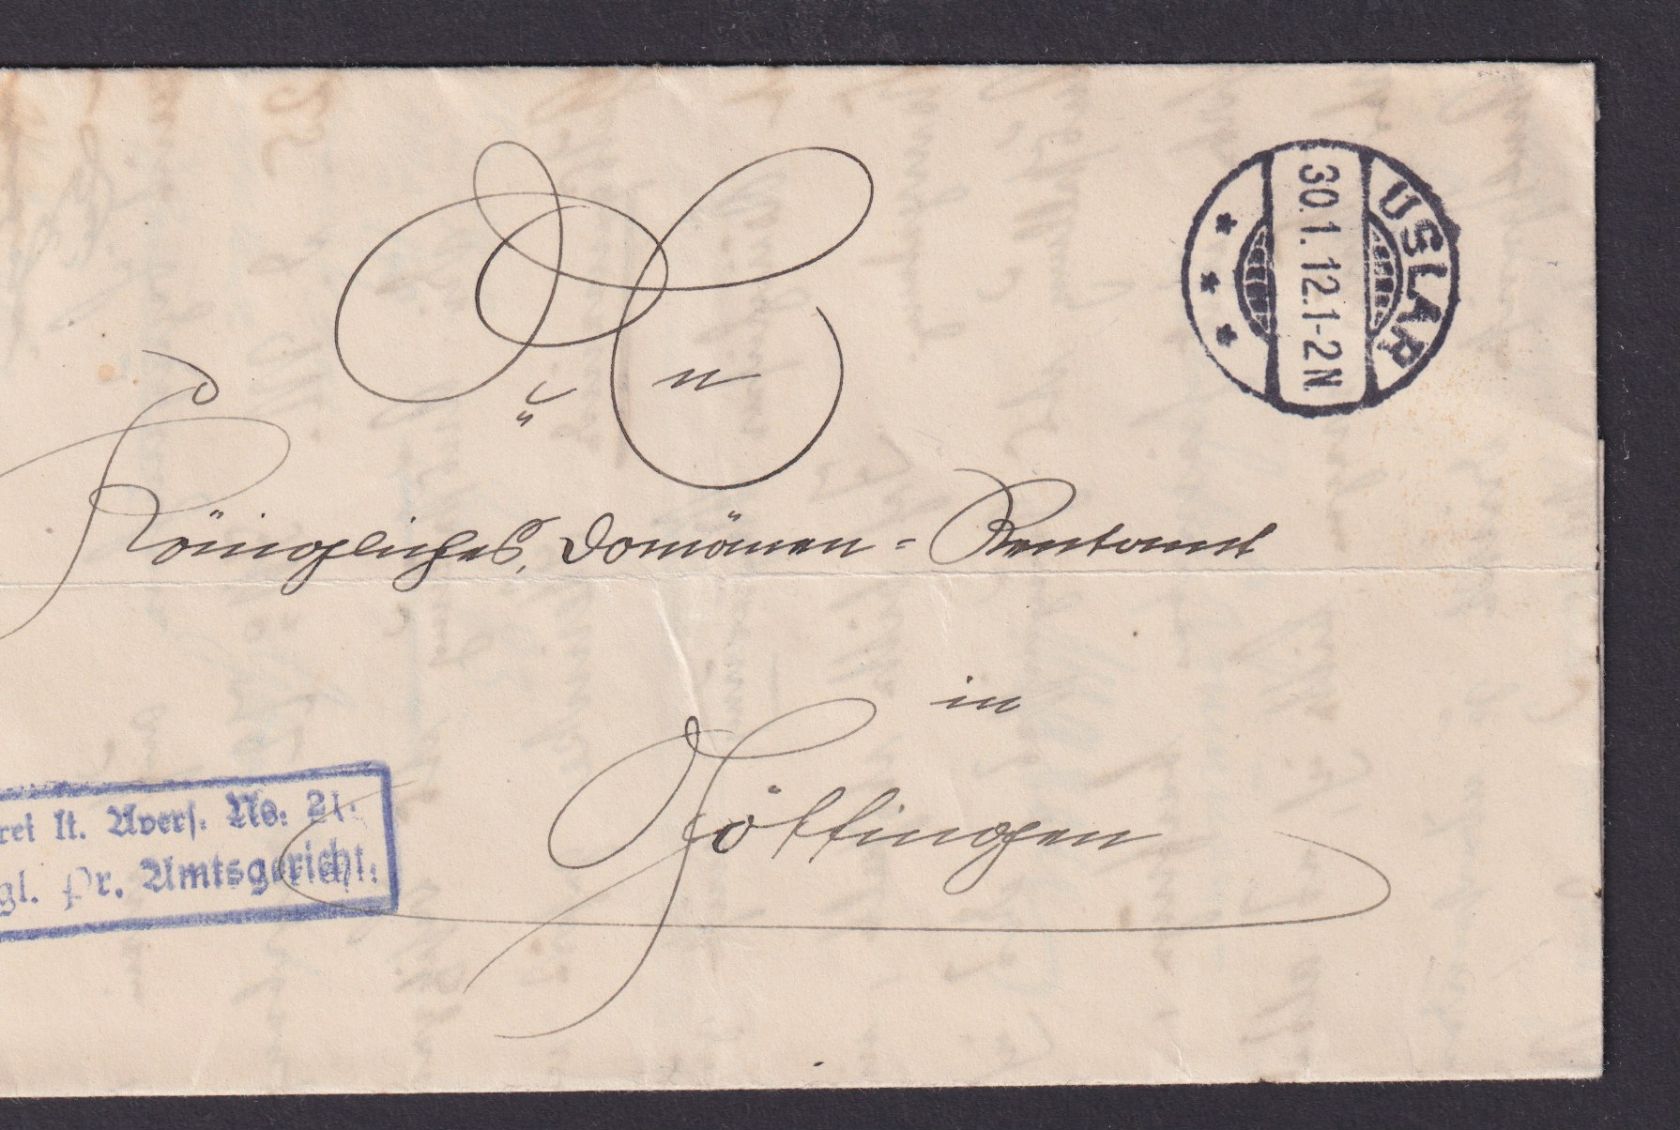 USLAR
30.1.12.1-2N.
An
Königliches Domänen-Rentamt
in
Göttingen
rei lt. Avers. No. 21.
gl. Pr. Amtsgericht.